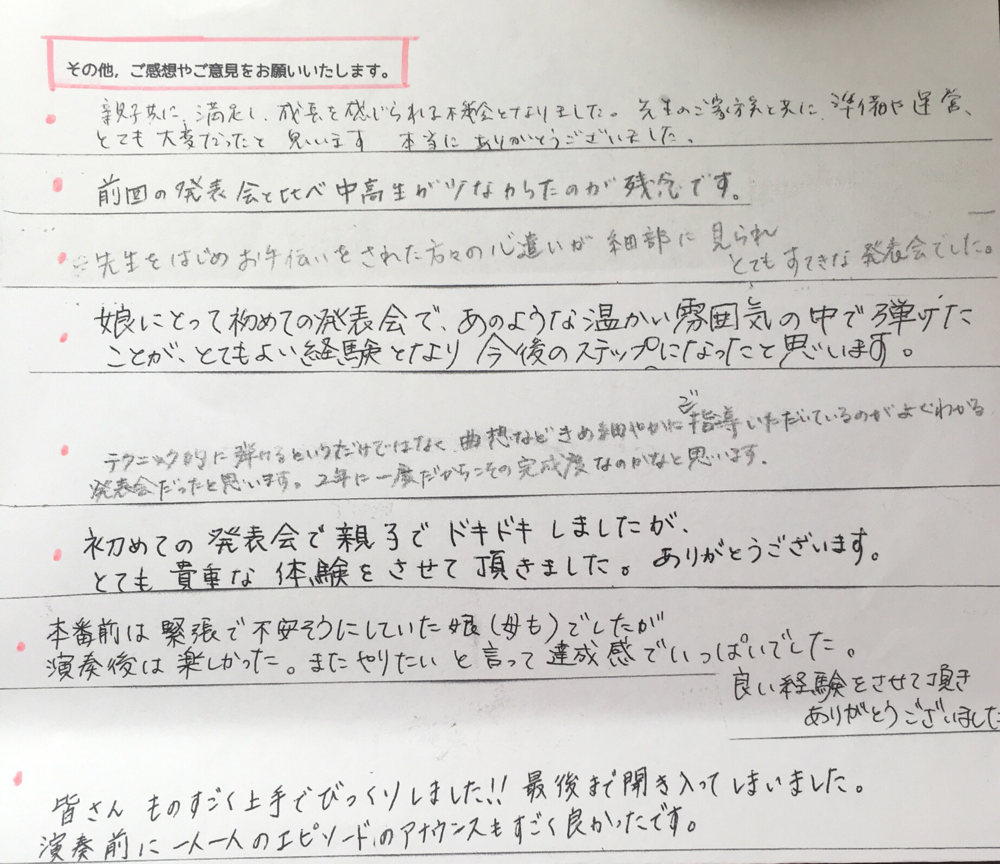 その他，ご感想やご意見をお願いいたします。
親子共に、満足し、成長を感じられる機会となりました。先生のご家族と共に、準備や運営、
とても大変だったと思いいます 本当にありがとうございました。
前回の発表会と比べ中高生が少なかったのが残念です。
先生をはじめお手伝いをされた方々の心遣いが細部に見られ
とてもすてきな発表会でした。
娘にとって初めての発表会で、あのような温かい雰囲気の中で弾けた
ことが、とてもよい経験となり今後のステップになったと思います。
ご
テクニック的に弾けるというだけではなく、曲想などきめ細やかに指導いただいているのがよくわかる
発表会だったと思います。2年に一度だからこその完成度なのかなと思います.
初めての発表会で親子でドキドキしましたが、
とても貴重な体験をさせて頂きました。ありがとうございます。
本番前は緊張で不安そうにしていた娘(母も)でしたが
演奏後は楽しかった。またやりたいと言って達成感でいっぱいでした。
良い経験をさせて頂き
ありがとうございました
皆さんものすごく上手でびっくりしました!!最後まで聞き入ってしまいました。
演奏前に一人一人のエピソードのアナウンスもすごく良かったです。